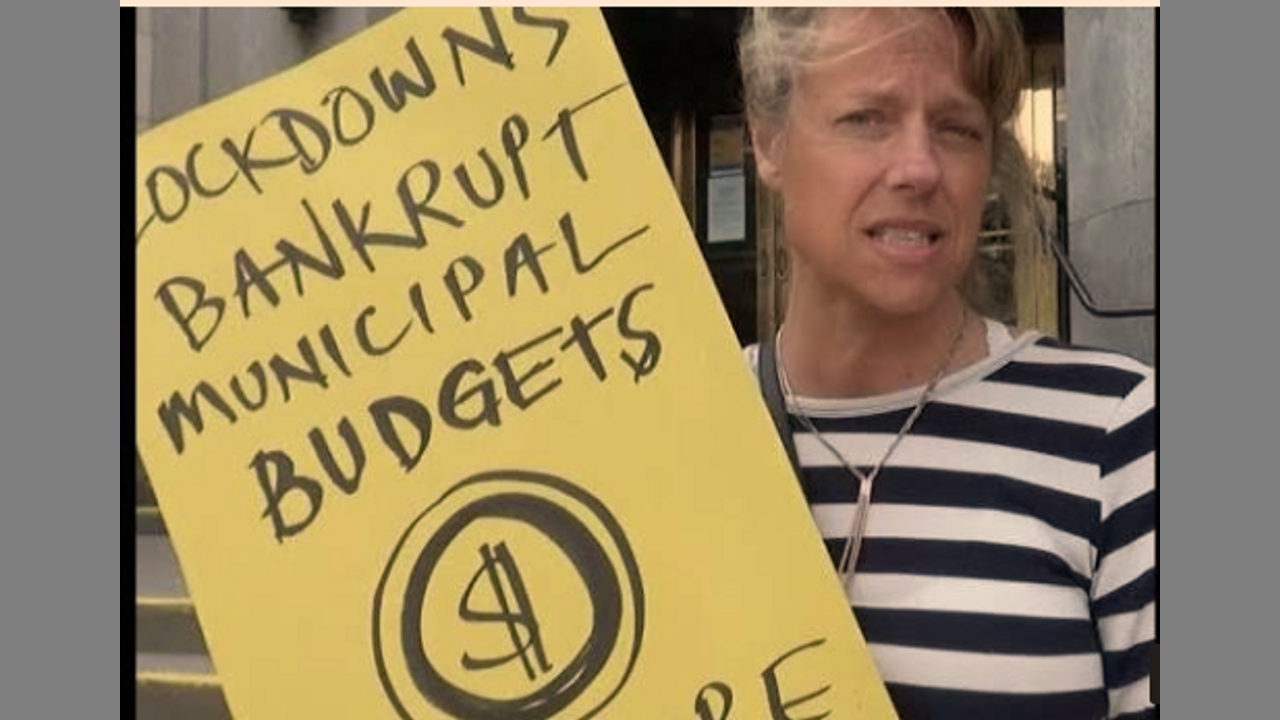 LOCKDOWNS
BANKRUPT
MUNICIPAL
BUDGETS
$